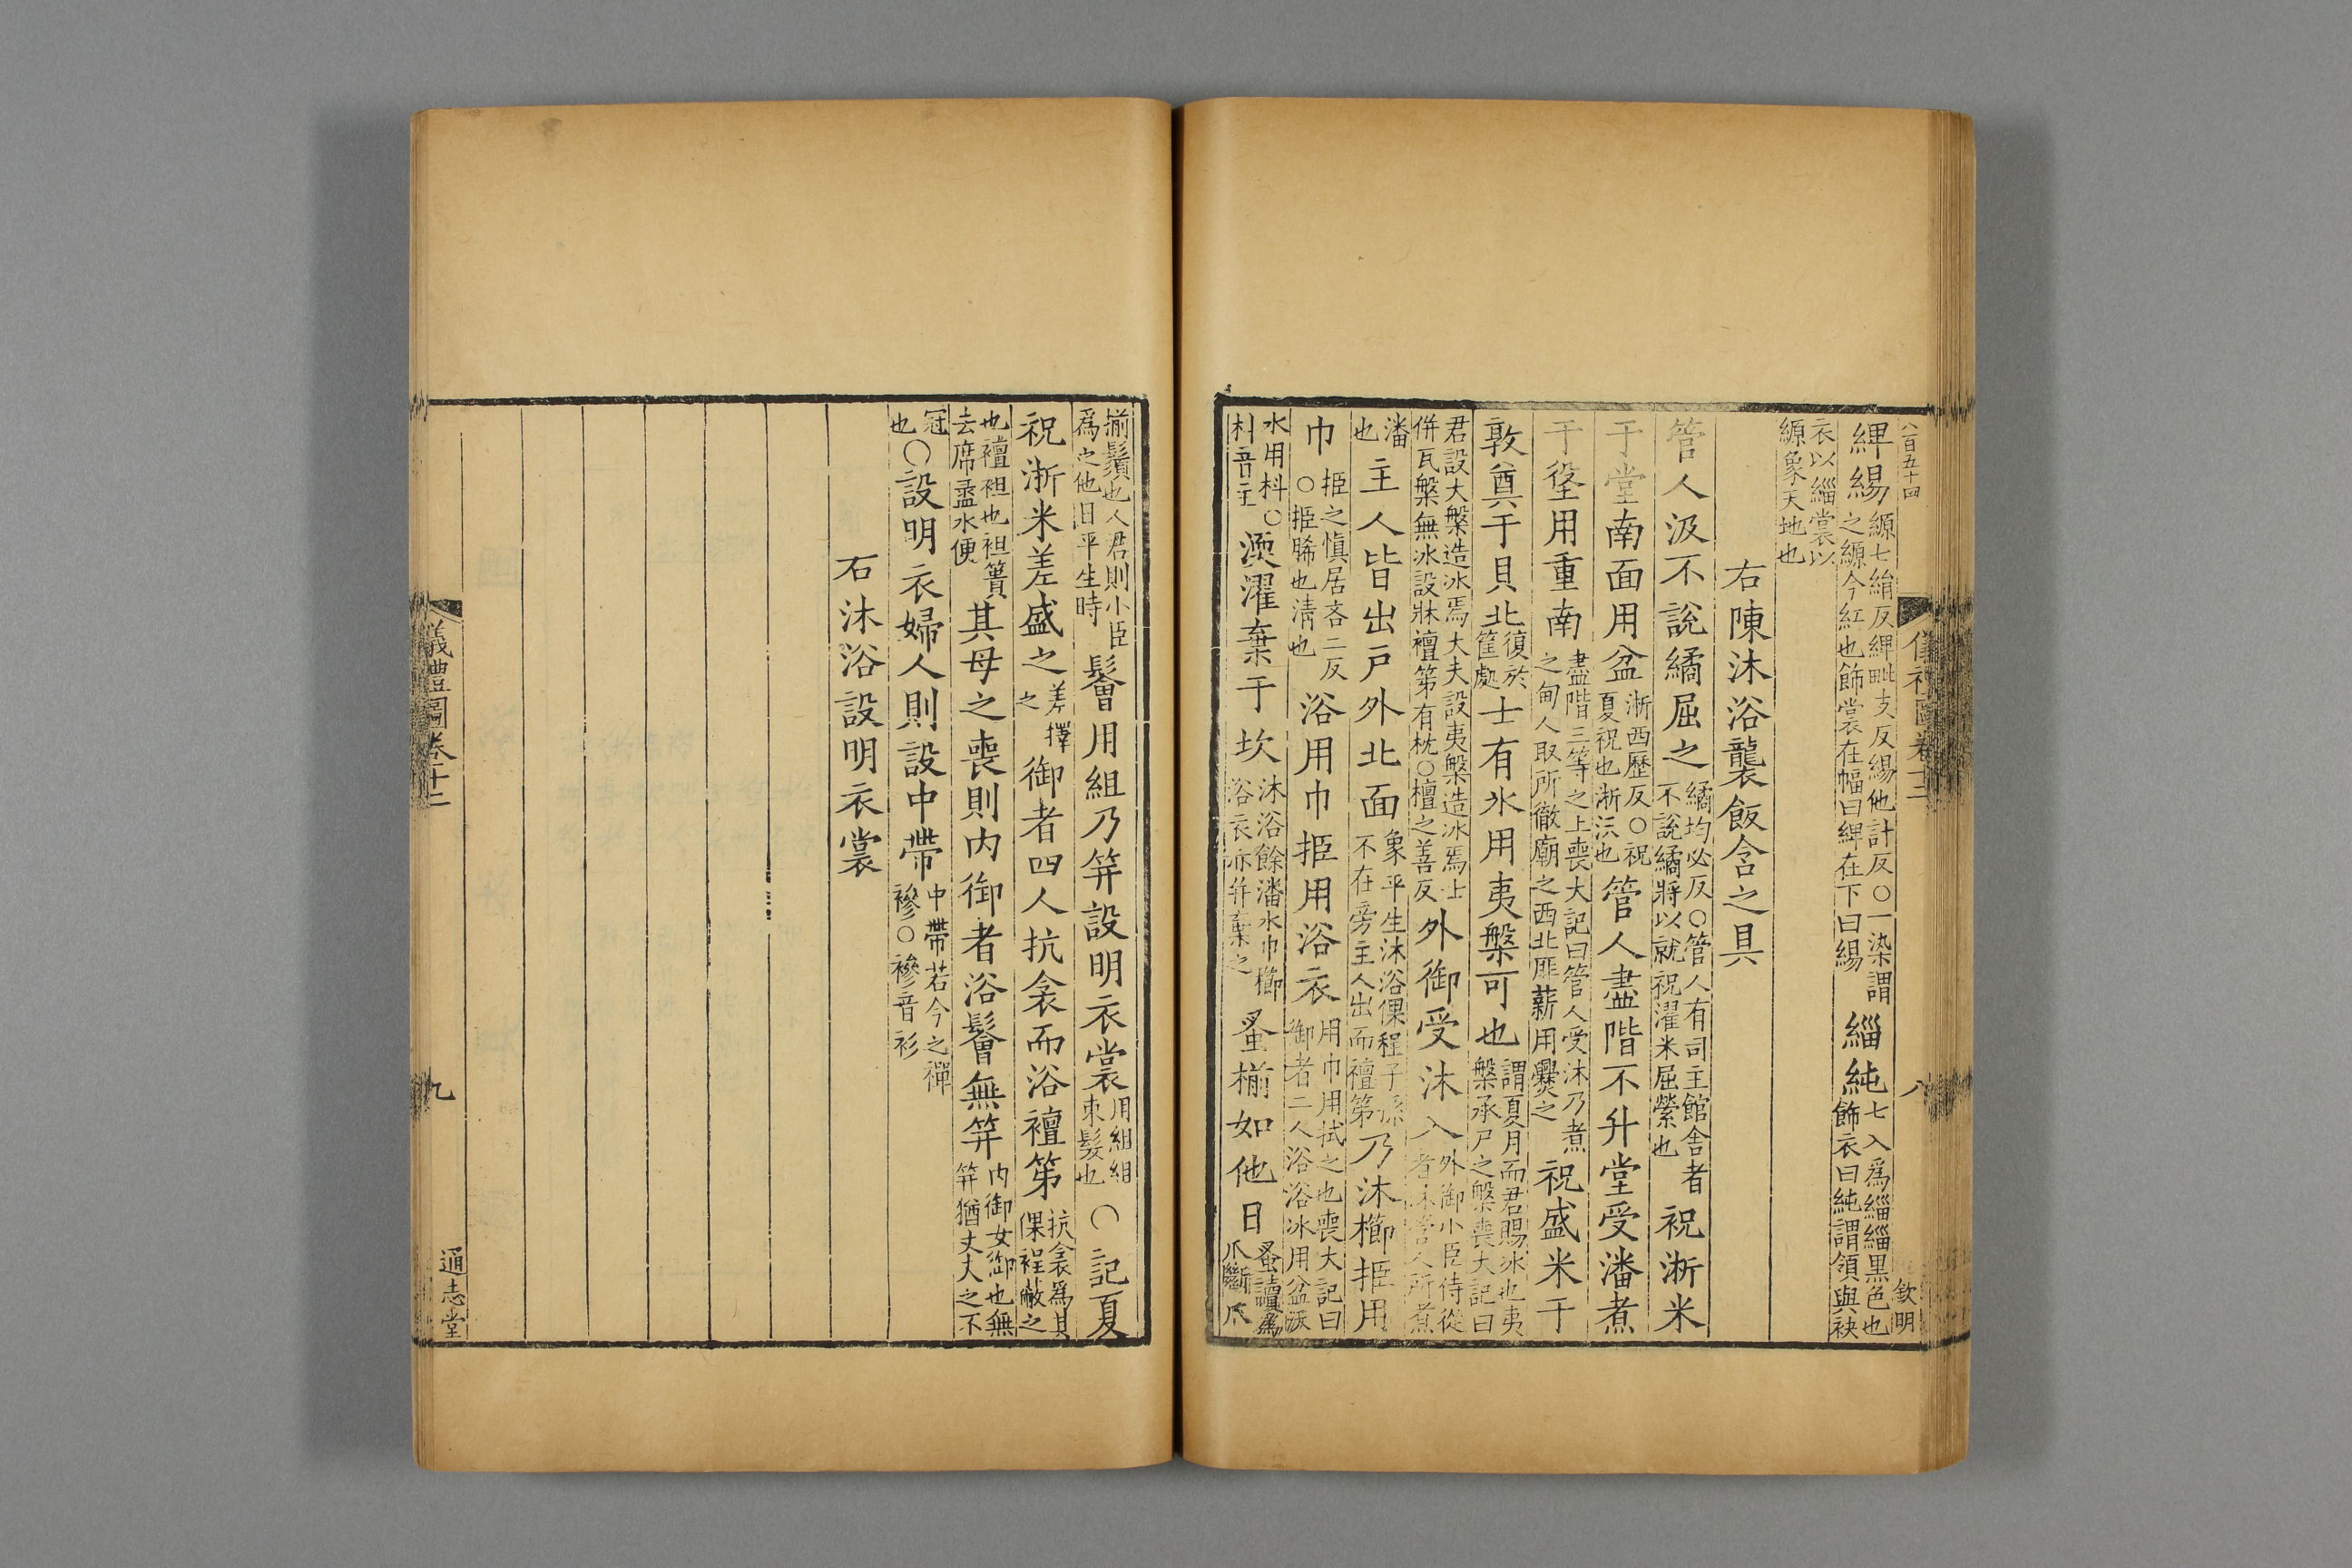 八百五十四
儀禮圖卷十二
八
欽明
綼緆縓七絹反綼毗支反緆他計反○一染謂之縓今紅也飾裳在幅曰綼在下曰緆緇純七入爲緇緇黑色也飾衣曰純謂領與袂
衣以緇裳以縓象天地也
右陳沐浴襲飯含之具
管人汲不說繘屈之繘均必反○管人有司主館舍者不說繘將以就祝濯米屈縈也祝淅米
于堂南面用盆淅西歷反○祝夏祝也淅汏也管人盡階不升堂受潘煮
于垼用重鬲盡階三等之上喪大記曰管人受沐乃煮之甸人取所徹廟之西北厞薪用爨之祝盛米于
敦奠于貝北復於筐處士有冰用夷槃可也謂夏月而君賜冰也夷槃承尸之槃喪大記曰
君設大槃造冰焉大夫設夷槃造冰焉士併瓦槃無冰設牀襢第有枕○襢之善反外御受沐入外御小臣侍從者沐管人所煮
潘也主人皆出戶外北面象平生沐浴倮裎子孫不在旁主人出而襢第乃沐櫛挋用
巾挋之愼居吝二反○挋晞也淸也浴用巾挋用浴衣用巾用拭之也喪大記曰御者二人浴浴水用盆沃
水用枓○枓音主渜濯棄于坎沐浴餘潘水巾櫛浴衣亦幷棄之蚤揃如他日蚤讀爲爪斷爪
揃鬚也人君則小臣爲之他日平生時鬠用組乃笄設明衣裳用組組束髮也○記夏
祝淅米差盛之差擇之御者四人抗衾而浴襢第抗衾爲其倮裎蔽之
也襢袒也袒簀去席盝水便其母之喪則內御者浴鬠無笄內御女御也無笄猶丈夫之不
冠也○設明衣婦人則設中帶中帶若今之襌襂○襂音衫
右沐浴設明衣裳
儀禮圖卷十二
九
通志堂